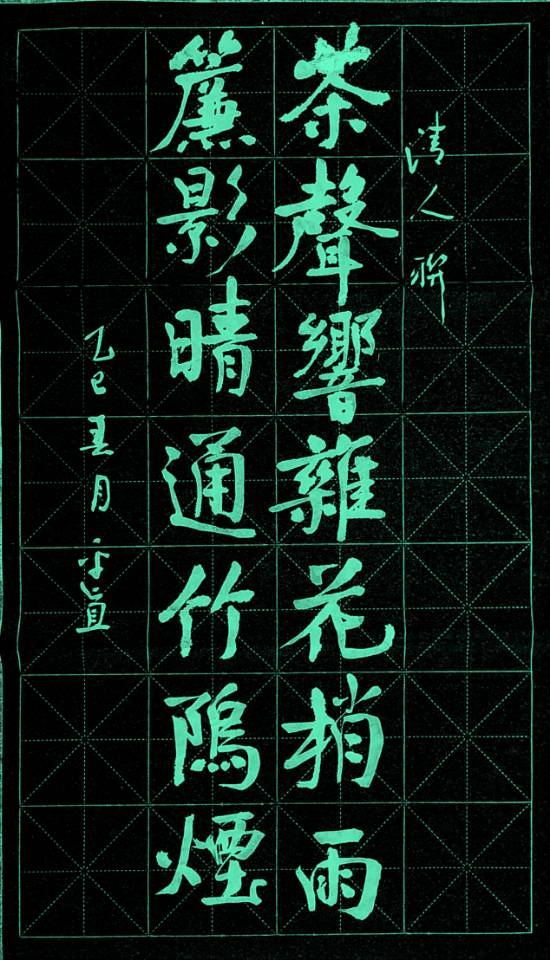 清人聯
茶聲響雜花梢雨
簾影晴通竹隖煙
乙巳五月